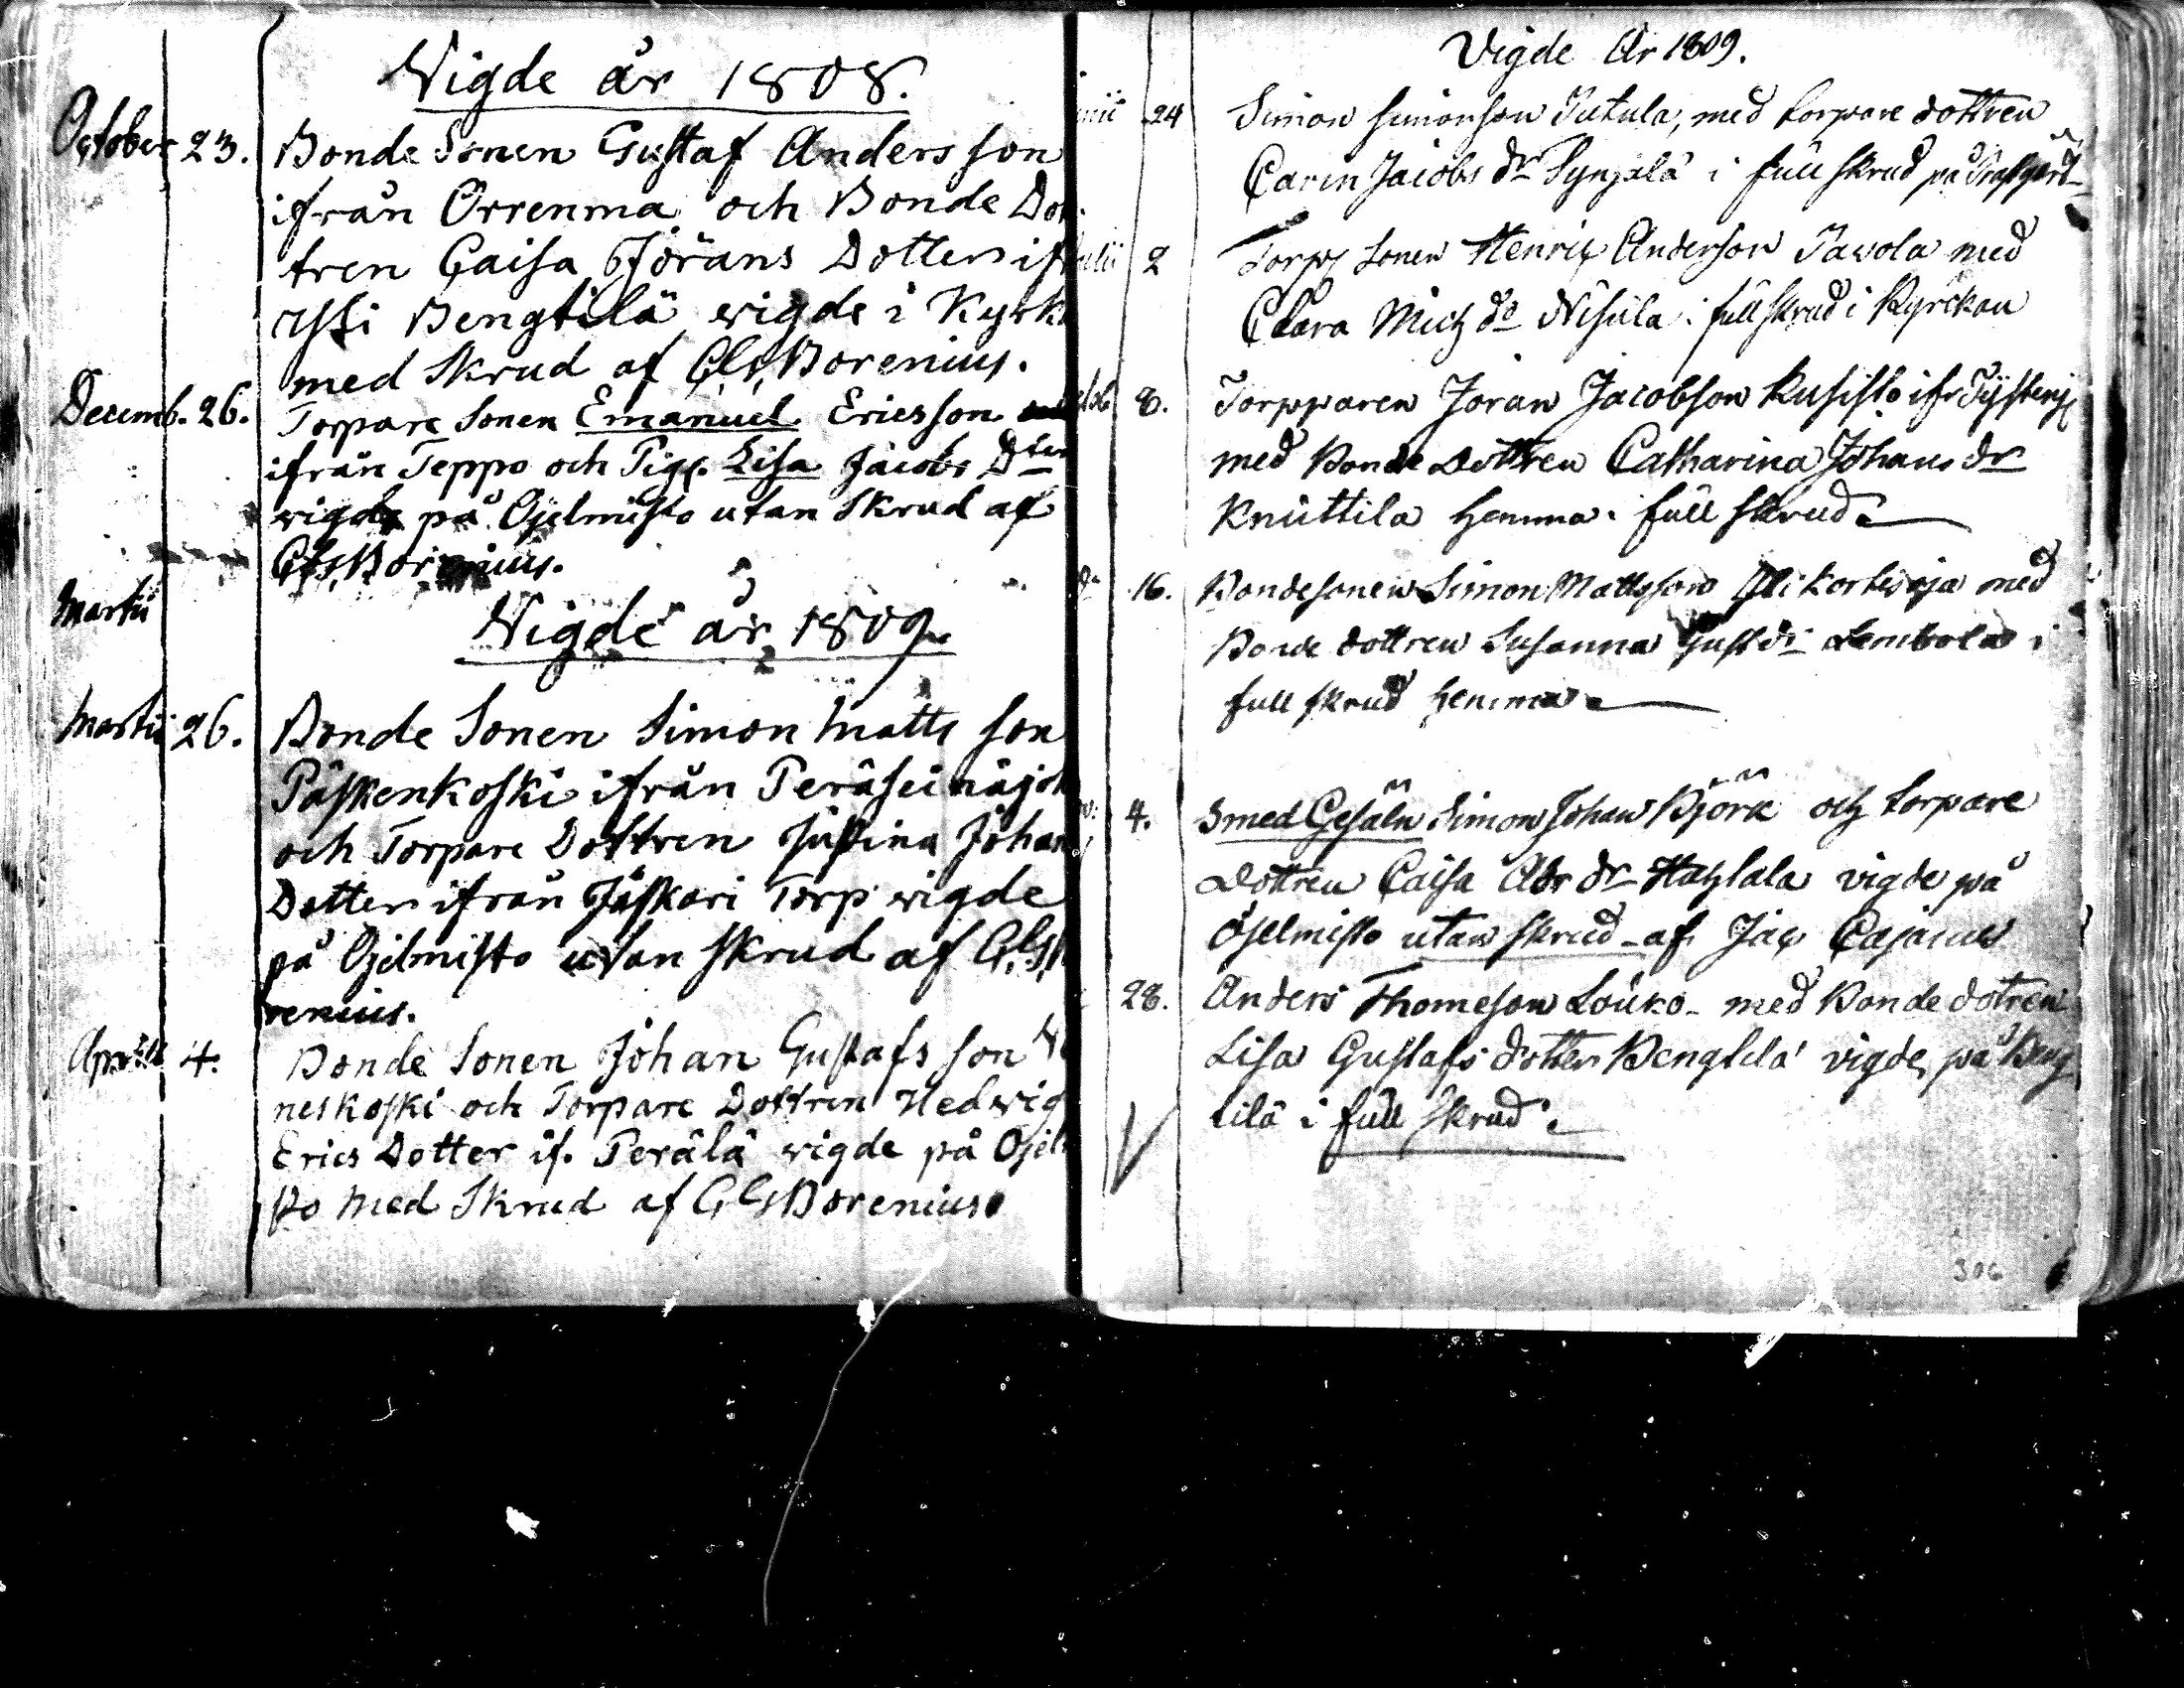 Wigde år 1808.
October 23. Bonde Sonen Gustaf Anders son
ifrån Orrenma och Bonde Dot
tren Caisa Jörans Dotter if
Ysti Bengtilä wigde i Kyrk
med Skrud af Gls Borenius.
Decemb. 26. Torpare Sonen Emanuel Ericsson
ifrån Teppo och Pig. Lisa Jacobs Dter
wigde på Ojelmisto utan Skrud af
Gls Borenius.
Martii
Wigde år 1809
Martii 26. Bonde Sonen Simon Matts son
Päskenkoski ifrån Peräseinäjok
och Torpare Dottren Justina Johan
Dotter ifrån Jåskari Torp wigde
på Ojelmisto utan Skrud af Gls
renius.
4. Bonde Sonen Johan Gustafs son
neskoski och Torpare Dottren Hedwig
Erics Dotter if. Perälä wigde på Ojel
sto med Skrud af Gls Borenius
Vigde År 1809.
24 Simon Simonson Jutula, med torpare dottren
Carin Jacobs dr i full skrud på
2 Torp Sonen Henric Anderson Pavola med
Clara Mich dr Nisula i full skrud i Kyrckan
8. Torpparen Jöran Jacobson Kusisto ifr
med Bonde Dottren Catharina Johans dr
Knuttila hemma i full skrud
16. Bondesonen Simon Mattsson Yli kortesoja med
Bonde dottren Susanna Gust dr Lembola i
full skrud hemma
4. Smed Gesäln Simon Johan Björk och torpare
Dottren Caisa Abr dr vigde på
Ojelmisto utan skrud af Jac Cajanus
28. Anders Thomeson Louko med Bonde dotren
Lisa Gustafs dotter Bengtilä vigde på Beng
tilä i full skrud
306